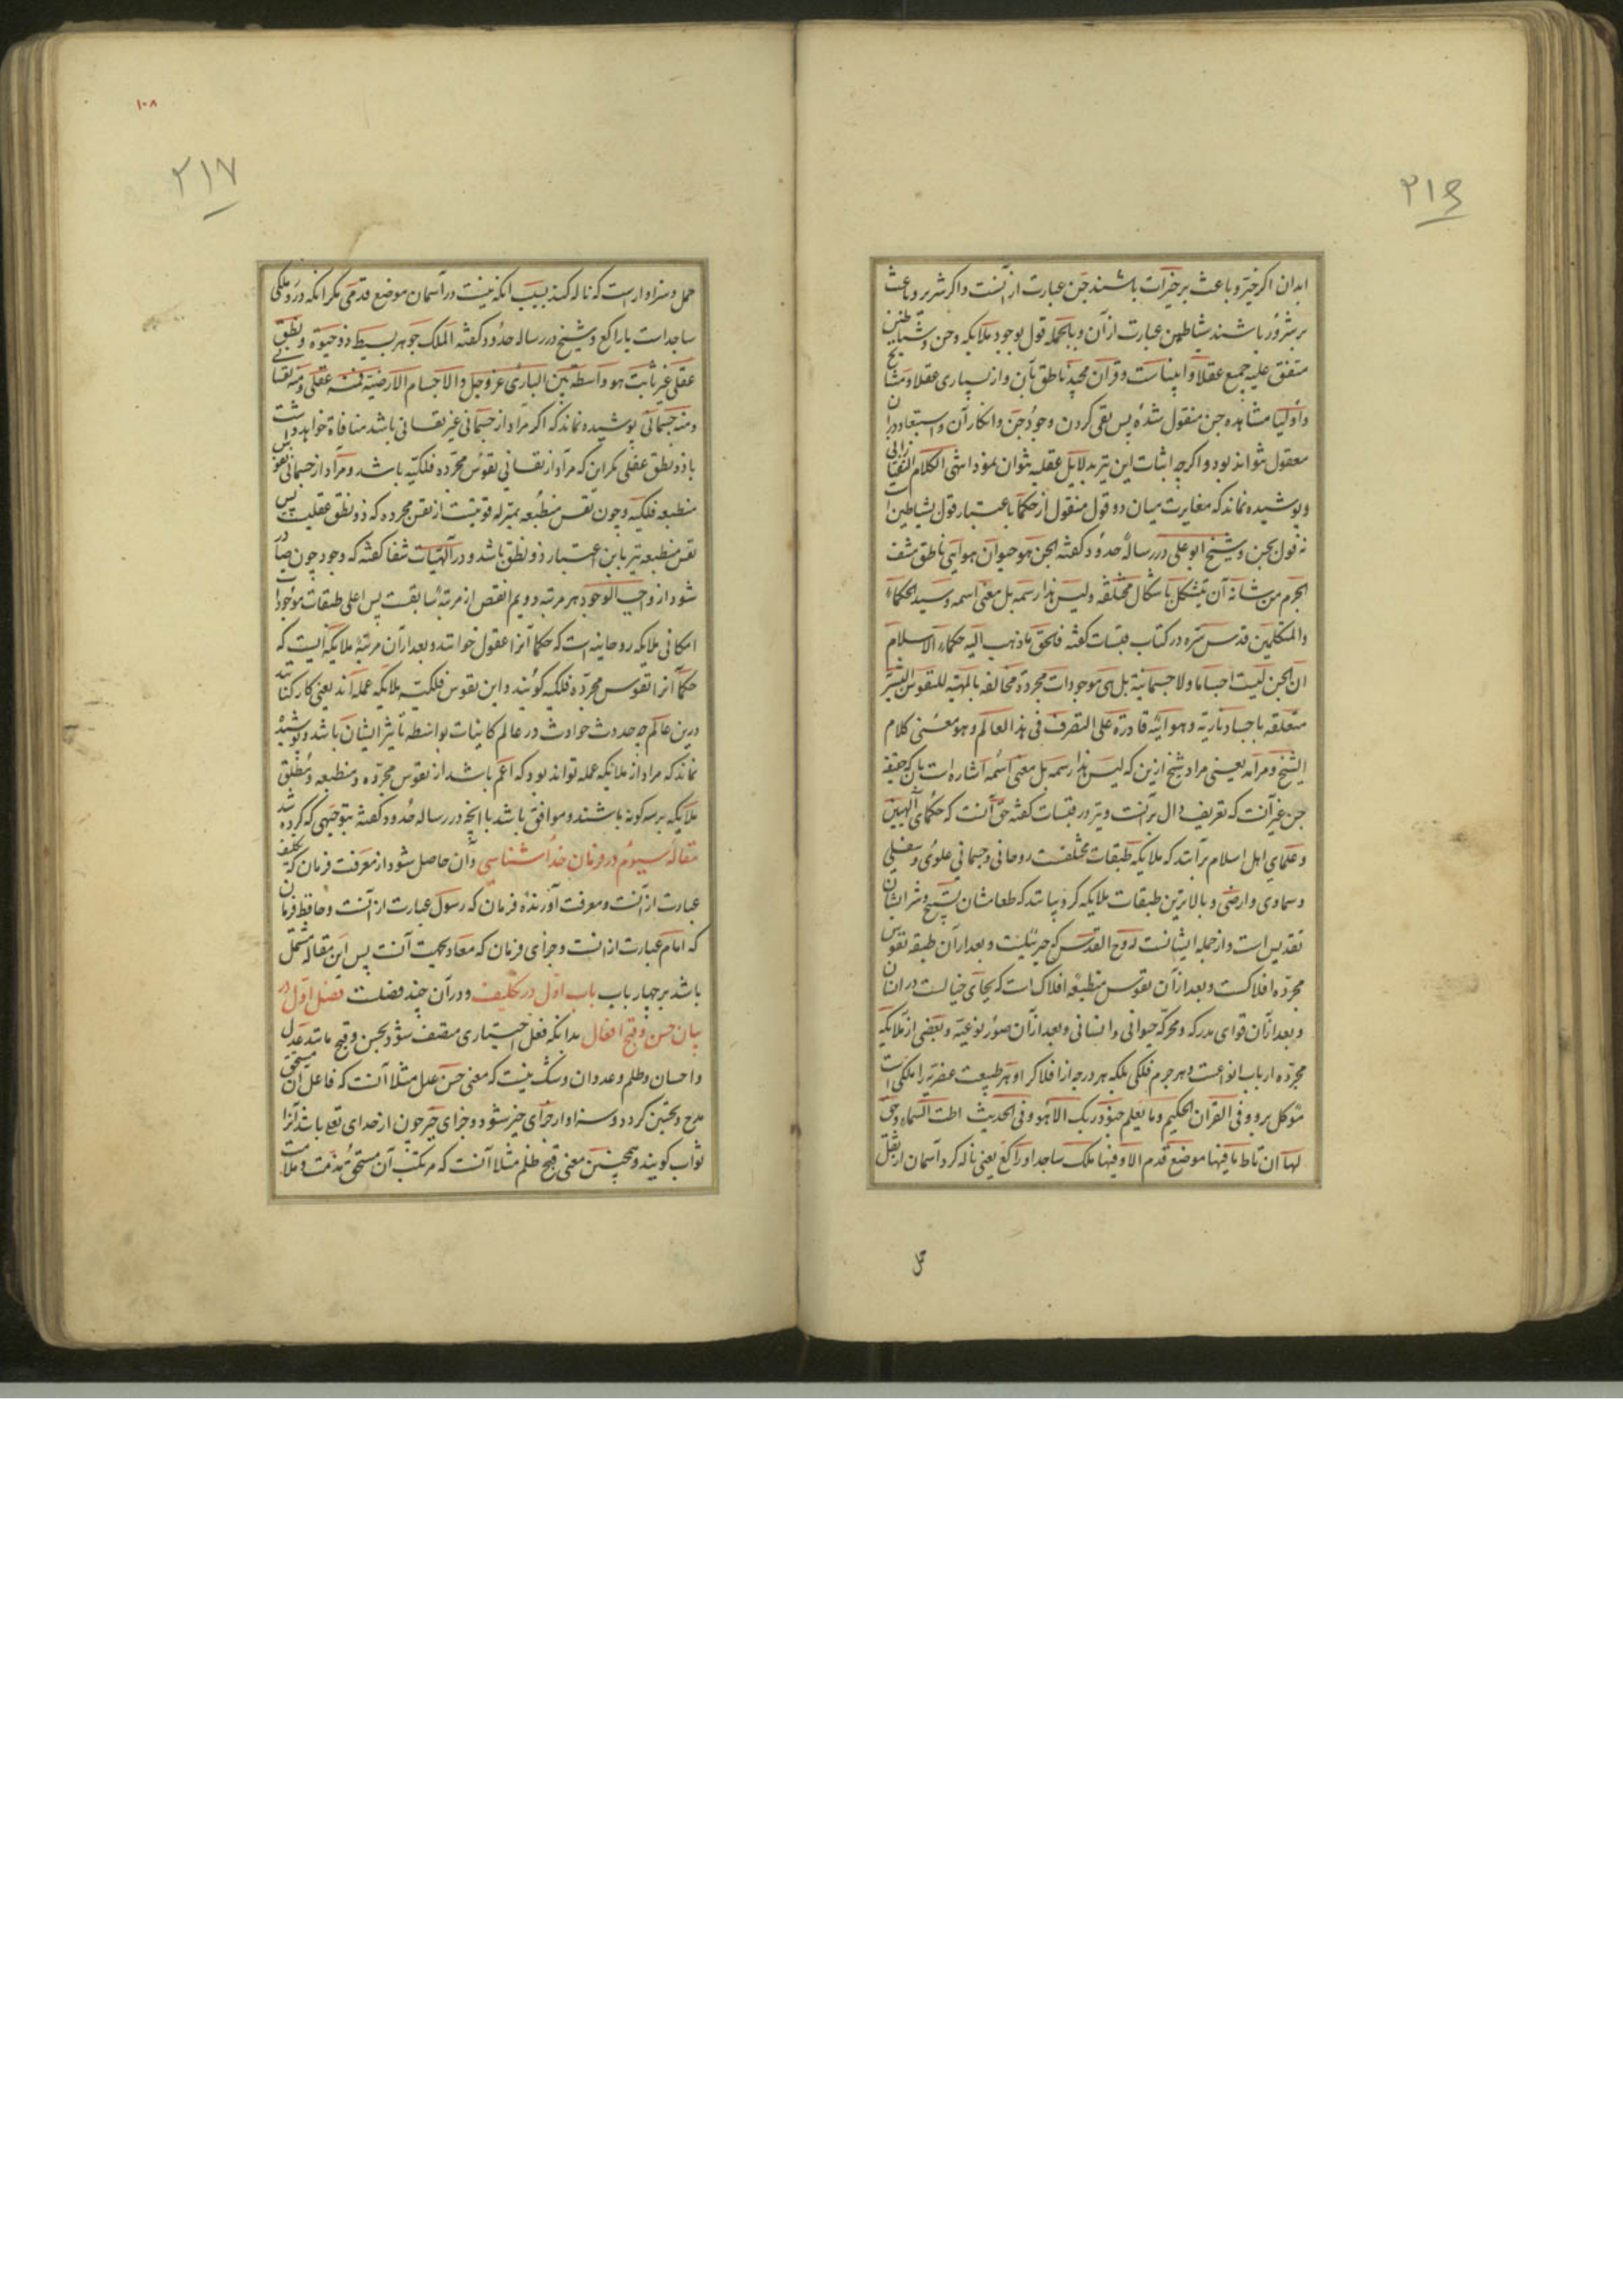 ۲۱۶
ابدان اگر خیّر و باعث بر خیرات باشند جن عبارت از آنست و اگر شریر و باعث
بر شرور باشند شیاطین عبارت از آن و بالجمله قول بوجود ملایکه و جن و شیاطین
متفق علیه جمیع عقلا و انبیاست و قرآن مجید ناطق بآن و از بسیاری عقلا و مشایخ
و اولیا مشاهده جن منقول شده پس نفی کردن وجود جن و انکار آن و استبعاد در آن
معقول نتواند بود و اگرچه اثبات این نیز بدلایل عقلیه نتوان نمود انتهی الکلام
و پوشیده نماند که مغایرت میان دو قول منقول از حکما باعتبار قول بشیاطین است
نه قول بجن و شیخ ابو علی در رساله حدود گفته الجن هو حیوان هوایی ناطق مشف
الجرم من شانه ان یتشکل باشکال مختلفه و لیس هذا رسمه بل معنی اسمه و سید الحکماء
والمتکلمین قدس سره در کتاب قبسات گفته فالحق ما ذهب الیه حکماء الاسلام
ان الجن لیست اجساما و لا جسمانیة بل هی موجودات مجردة مخالفه بالمهیه للنفوس البشریه
متعلقه باجساد ناریه و هوائیه قادرة علی التصرف فی هذا العالم و هو معنی کلام
الشیخ و مرامه یعنی مراد شیخ ازین که لیس هذا رسمه بل معنی اسمه اشاره است بانکه حقیقه
جن غیر آنست که تعریف دال برآنست و نیز در قبسات گفته حق آنست که حکمای آلهیین
و علمای اهل اسلام برآنند که ملایکه طبقات مختلفست روحانی و جسمانی علوی و سفلی
و سماوی و ارضی و بالاترین طبقات ملایکه کروبیانند که طعامشان تسبیح و شرابشان
تقدیس است و از جمله ایشانست روح القدس که جبرئیلست و بعد از آن طبقه نفوس
مجرّده افلاکست و بعد از آن نفوس منطبعه افلاک است که بجای خیالست در انسان
و بعد از آن قوای مدرکه و محرکه حیوانی و انسانی و بعد از آن صور نوعیّه و بعضی از ملایکه
مجرّده ارباب انواعست و هر جرم فلکی بلکه هر درجه از افلاک را و هر طبیعت عنصریه را ملکی است
موکل برو و فی القران الحکیم و ما یعلم جنود ربک الا هو و فی الحدیث اطت السماء و حق
لها ان تاط ما فیها موضع قدم الا و فیها ملک ساجد او راکع یعنی ناله کرد آسمان از ثقل
حمل
۱۰۸
۲۱۷
حمل و سزاوار است که ناله کند بسبب آنکه نیست در آسمان موضع قدمی مگر آنکه درو ملکی
ساجد است یا راکع و شیخ در رساله حدود گفته الملک جوهر بسیط ذو حیوة و نطق
عقلی غیر مائت هو واسطة بین الباری عز و جل و الاجسام الارضیة فمنه عقلی و منه نفسانی
و منه جسمانی پوشیده نماند که اگر مراد از جسمانی غیر نفسانی باشد منافاة خواهد داشت
با ذو نطق عقلی مگر این که مراد از نفسانی نفوس مجرّده فلکیّه باشد و مراد از جسمانی نفوس
منطبعه فلکیه و چون نفس منطبعه بمنزله قوتیست از نفس مجرده که ذو نطق عقلیست پس
نفس منطبعه نیز باین اعتبار ذو نطق باشد و در آلهیات شفا گفته که وجود چون صادر
شود از واجب الوجود هر مرتبه دویم انقص از مرتبه سابقست پس اعلی طبقات موجودات
امکانی ملایکه روحانیه است که حکما آنرا عقول خوانند و بعد از آن مرتبه ملایکه ایست که
حکما آنرا نفوس مجرّده فلکیه گویند و این نفوس فلکیّه ملایکه عمله اند یعنی کارکنانند
درین عالم چه حدوث حوادث در عالم کاینات بواسطه تأثیر ایشان باشد و پوشیده
نماند که مراد از ملایکه عمله تواند بود که اعم باشد از نفوس مجرّده و منطبعه و مطلق
ملایکه بر سه گونه باشند و موافق باشد با انچه در رساله حدود گفته بتوجیهی که کرده شد
مقاله سیوم در فرمان خدا شناسی و آن حاصل شود از معرفت فرمان که تکلیف
عبارت از آنست و معرفت آورنده فرمان که رسول عبارت از آنست و حافظ فرمان
که امام عبارت از انست و جزای فرمان که معاد بجهت آنست پس این مقاله مشتمل
باشد بر چهار باب باب اول در تکلیف و در آن چند فصلست فصل اول در
بیان حسن و قبح افعال بدانکه فعل اختیاری متصف شود بحسن و قبح مانند عدل
و احسان و ظلم و عدوان و شک نیست که معنی حسن عدل مثلا آنست که فاعل آن مستحق
مدح و تحسین گردد و سزاوار جزای خیر شود و جزای خیر چون از خدای تع باشد آنرا
ثواب گویند و همچنین معنی قبح ظلم مثلا آنست که مرتکب آن مستحق مذمت و ملامت